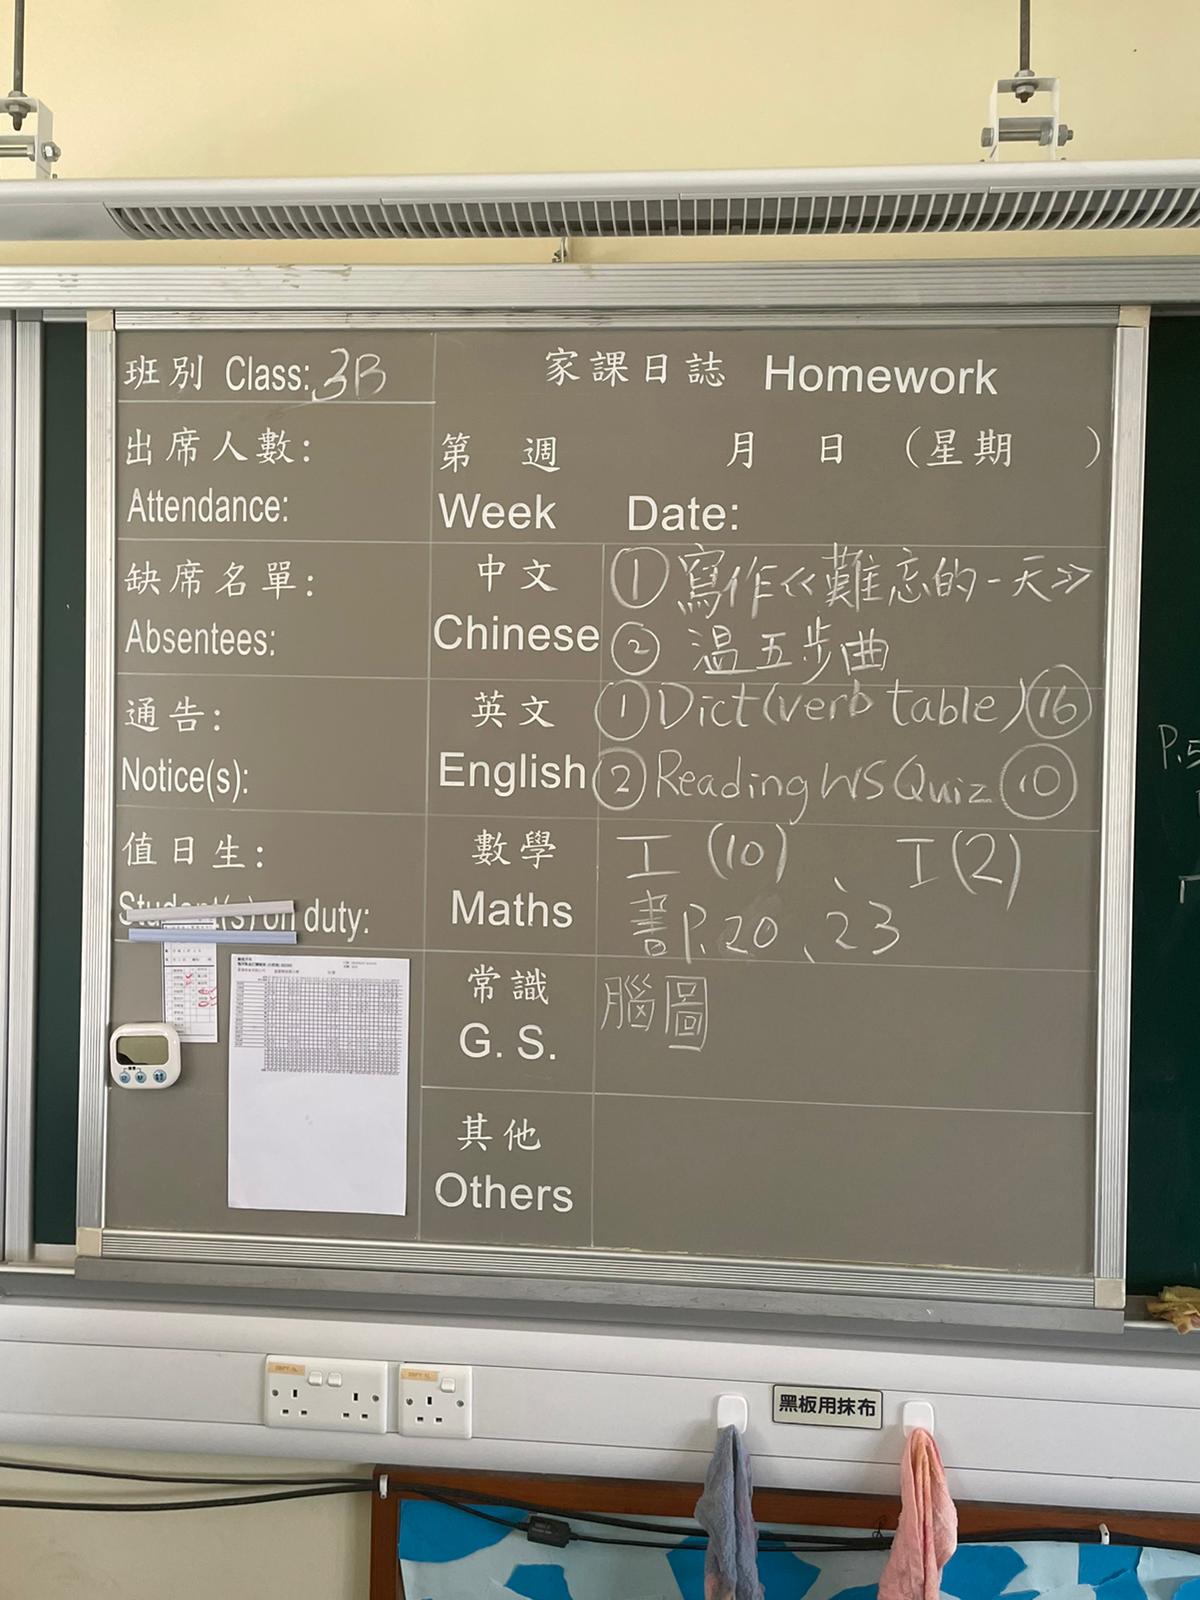 班別 Class: 3B
家課日誌 Homework
出席人數:
Attendance:
第 週 月 日 (星期 )
Week Date:
缺席名單:
Absentees:
中文
Chinese
① 寫作<<難忘的一天>>
② 溫五步曲
通告:
Notice(s):
英文
English
① Dict(verb table) ⑯
② Reading WS Quiz ⑩
值日生:
Student(s) on duty:
數學
Maths
工(10)、工(2)
書P.20、23
常識
G. S.
腦圖
其他
Others
黑板用抹布